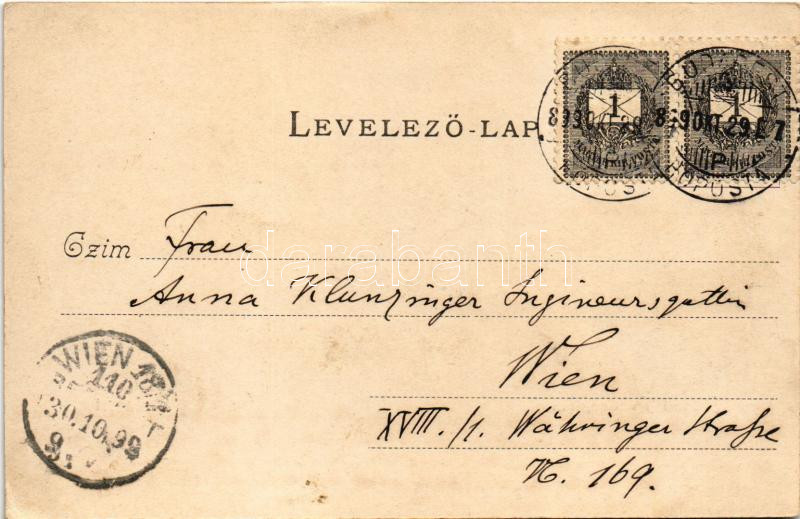 LEVELEZŐ-LAP
1
1
899 OKT. 29. E 7
BUDAPEST
FŐPOSTA
Czim Frau
Anna Klunzinger Ingineursgattin
Wien
XVIII./1. Währinger Straße
N. 169.
WIEN 18/1
110
30.10.99
9
darabanth